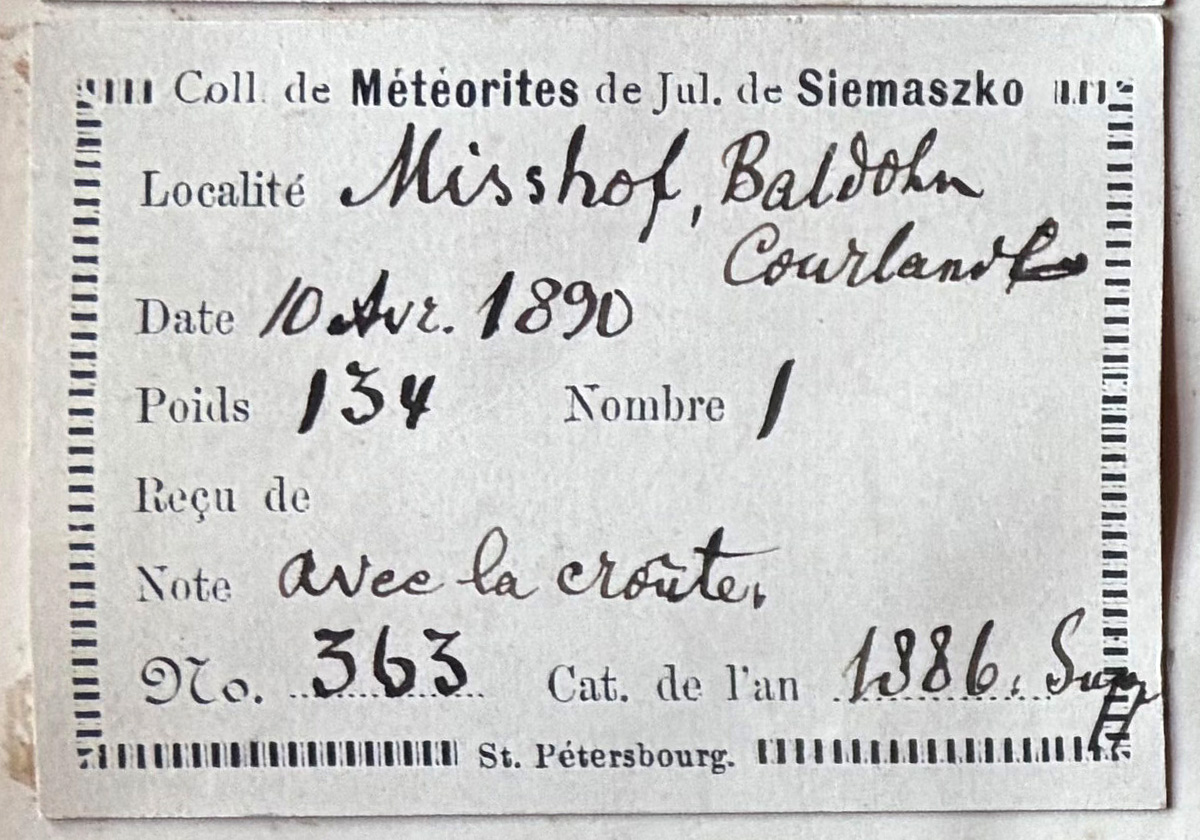 Coll. de Météorites de Jul. de Siemaszko
Localité Misshof, Baldohn
Courlande
Date 10 Avr. 1890
Poids 134 Nombre 1
Reçu de
Note avec la croûte.
No. 363 Cat. de l'an 1886. Supp
St. Pétersbourg.